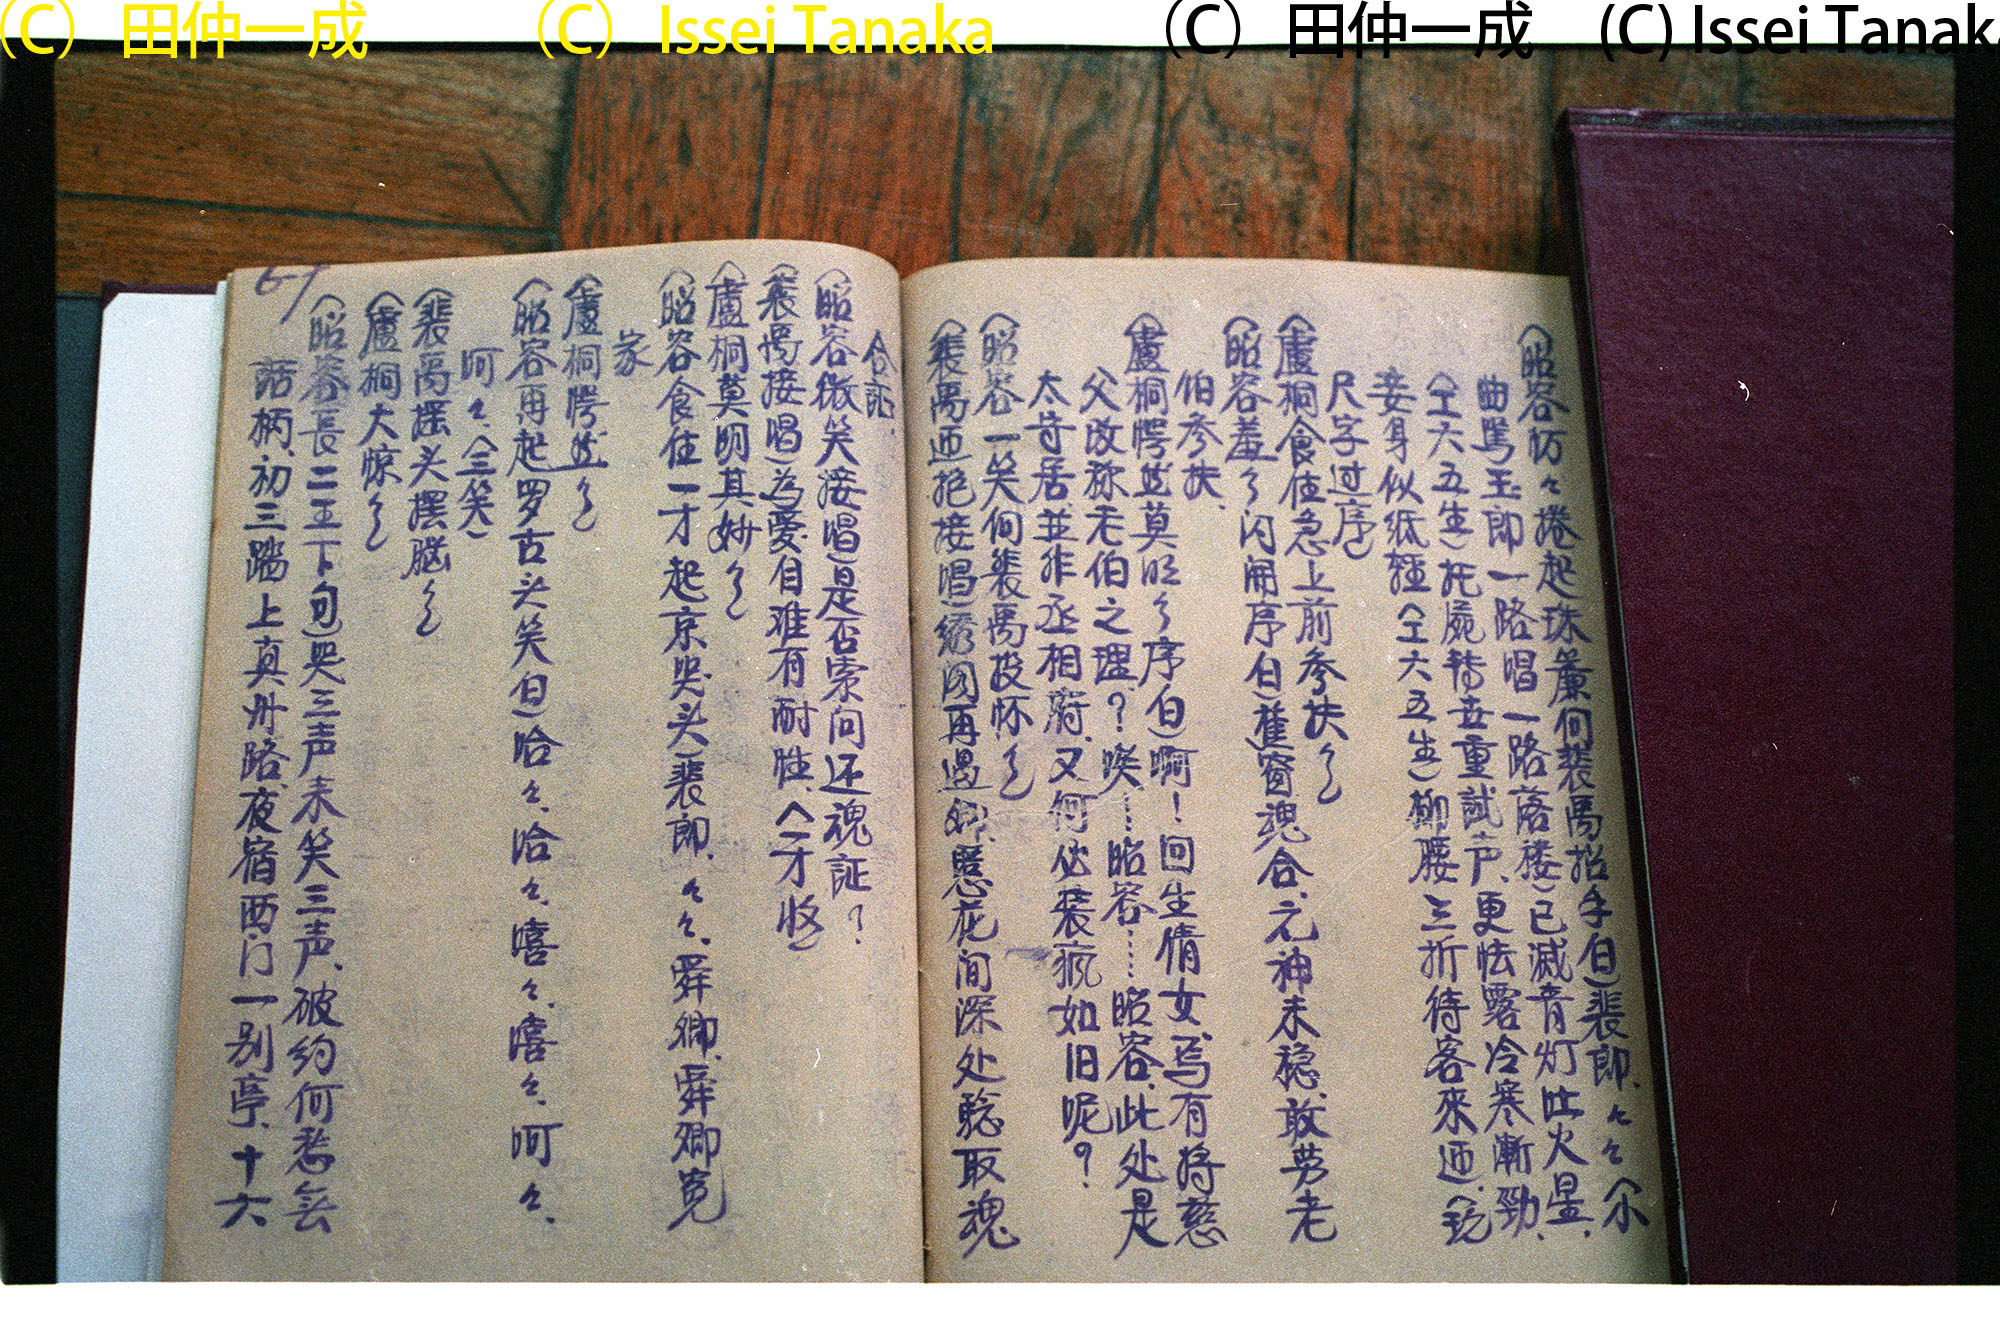 (C) 田仲一成 (C) Issei Tanaka (C) 田仲一成 (C) Issei Tanaka
(昭容仿々捲起珠簾向裴禹招手白)裴郎、々々尔
曲罵玉郎一路唱一路落楼)已滅青灯吐火星、
(工六五生)托屍轉去重試声、更怯露冷寒漸勁、
妾身似纸軽(工六五生)柳腰三折待客來迊、(鈗
尺字过序)
(盧桐食住急上前参扶介)
(昭容羞介闪開序白)舊窗魂合、元神未稳、敢劳老
伯参扶、
(盧桐愕然莫明介序白)啊！回生倩女、焉有将慈
父改称老伯之理？唉……昭容……昭容、此处是
太守居、並非丞相府、又何必装瘋如旧呢？
(昭容一笑向裴禹投怀介)
(裴禹迊抱接唱)绣阁再遇卿、惹花间深处驗取魂
合証、
(昭容微笑接唱)是否索问还魂証？
(裴禹接唱)為愛自难有耐性、(一才收)
(盧桐莫明其妙介)
(昭容食住一才起京哭头)裴郎、々々、舜卿、舜卿寃
家
(盧桐愕然介)
(昭容再起罗古头笑白)哈々、哈々、嘻々、嘻々、呵々、
呵々、(三笑)
(裴禹摇头摆脑介)
(盧桐大惊介)
(昭容長二王下句)哭三声未笑三声、破约何愁無
話柄、初三踏上真州路、夜宿西门一别亭、十六